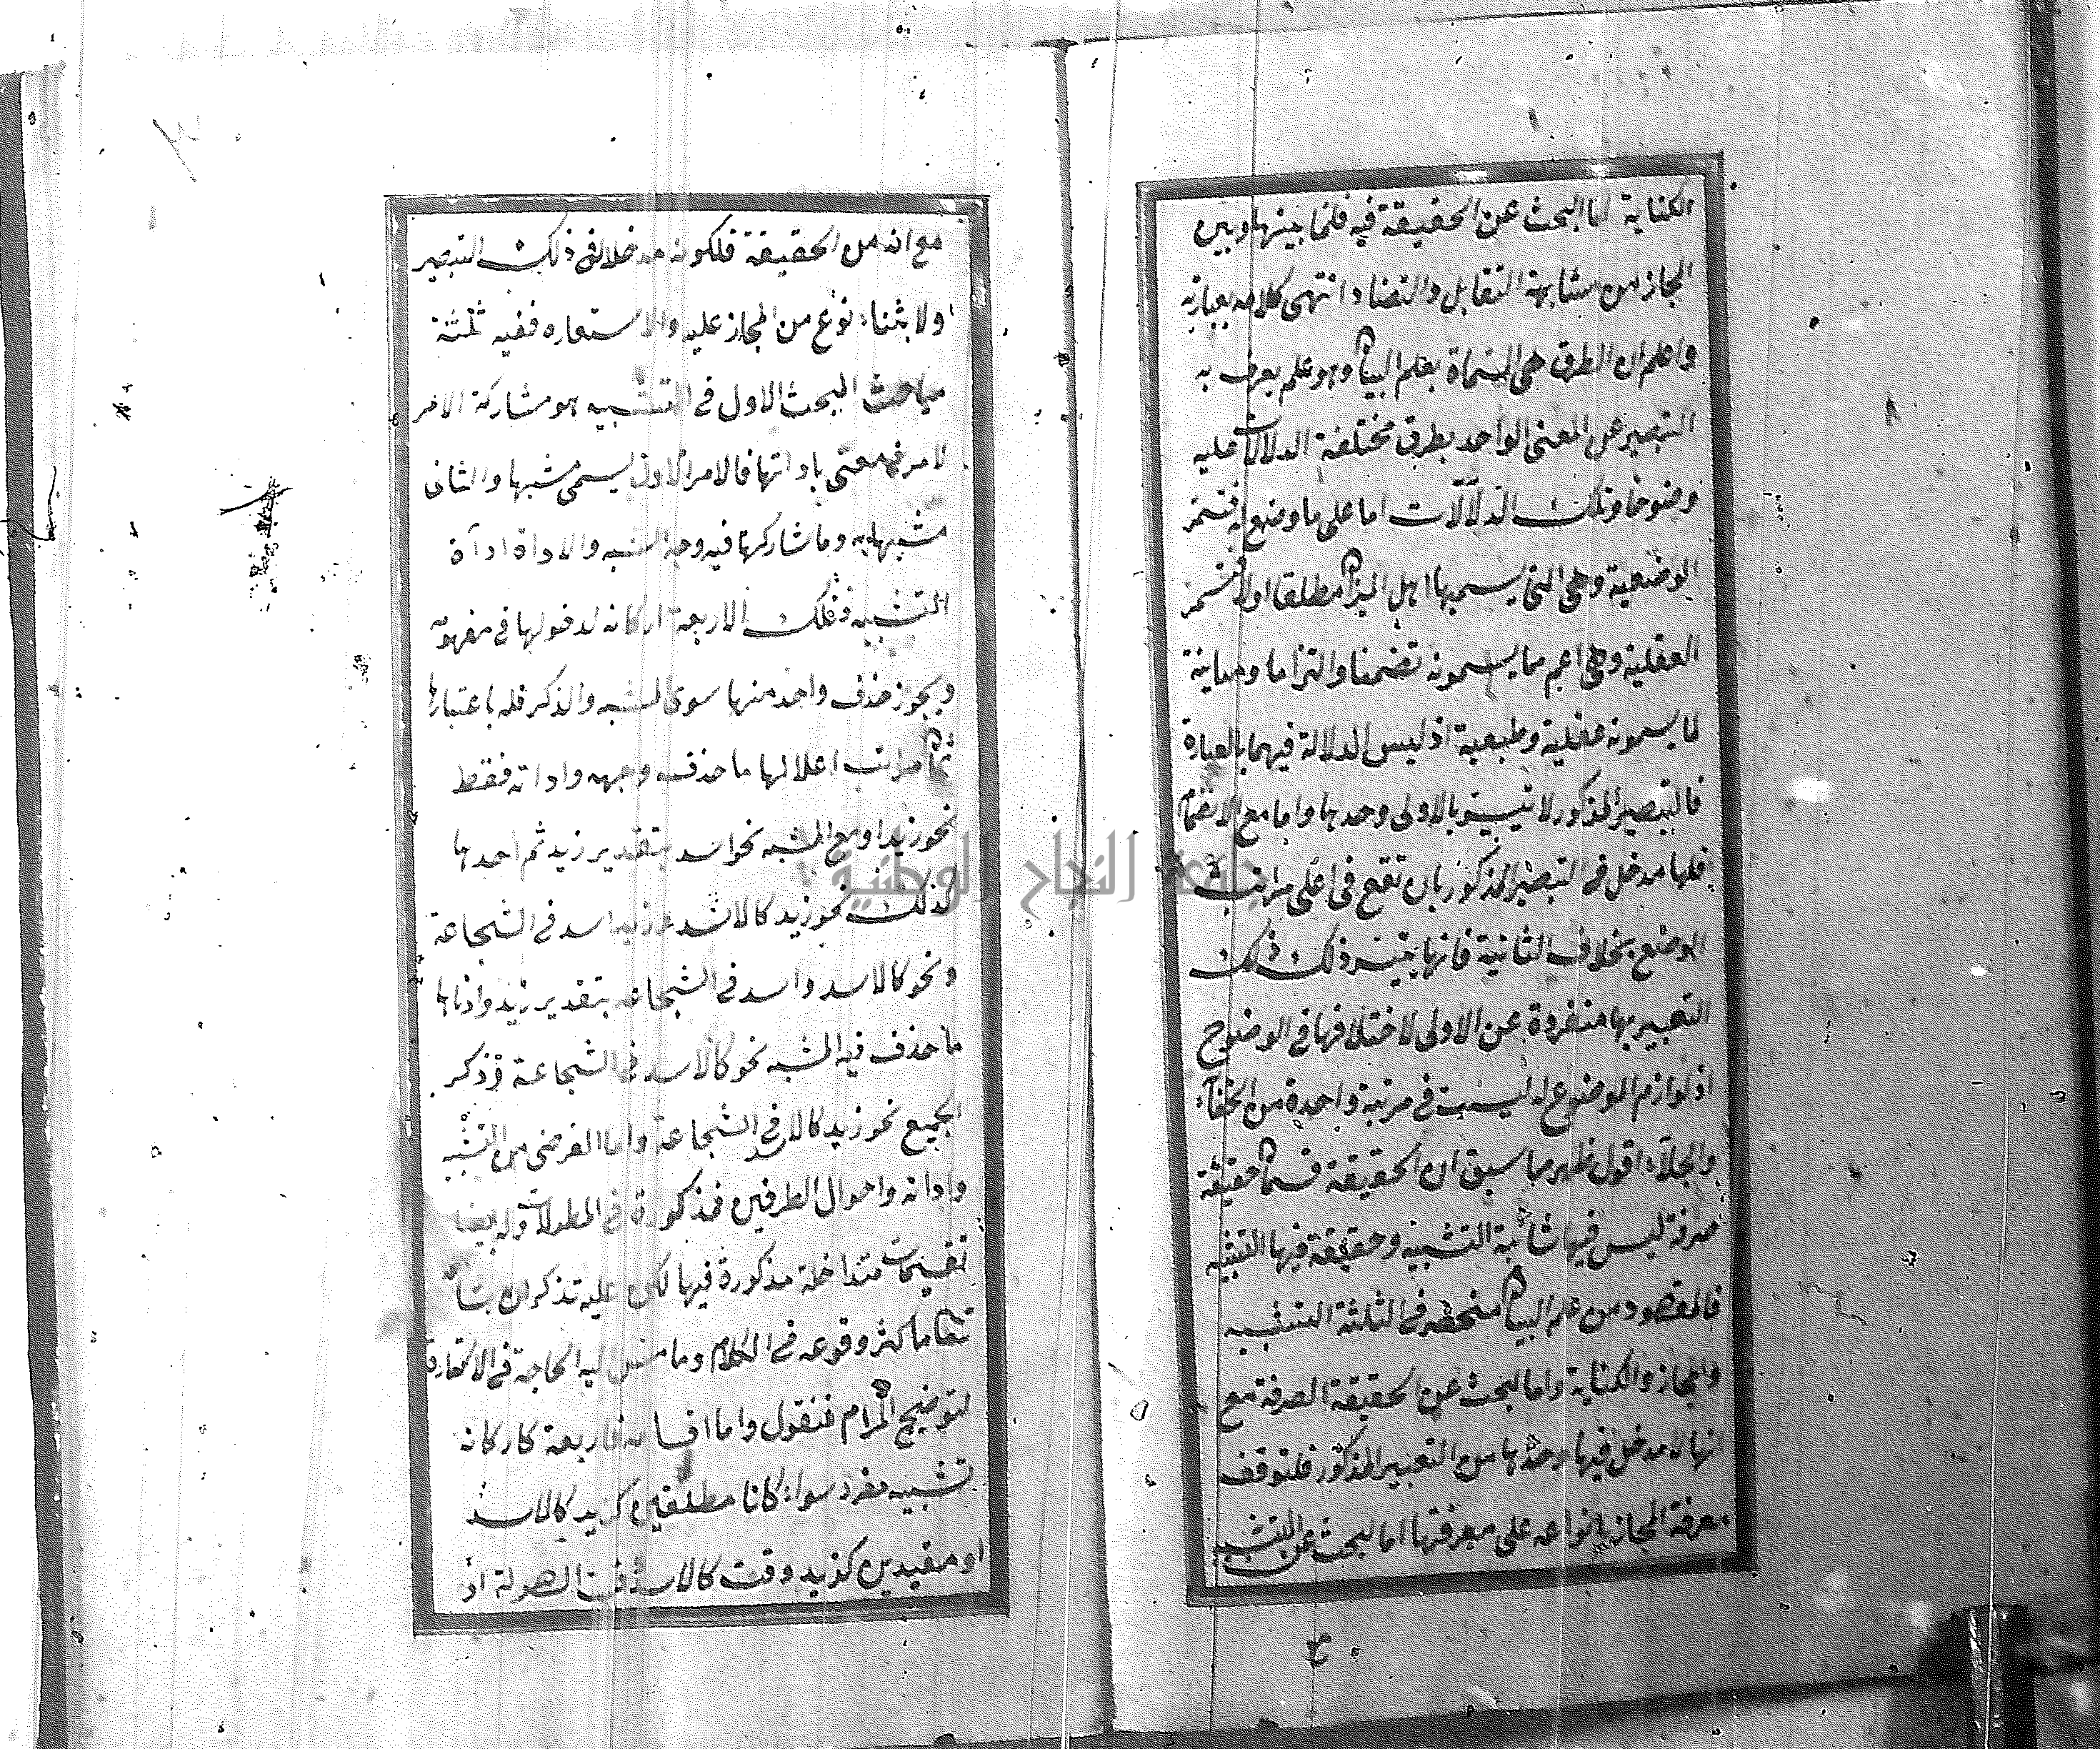 الكناية اما البحث عن الحقيقة فيه فلما بينها وبين
المجاز من مشابهة التقابل والتضاد انتهى كلامه بعبارته
واعلم ان الطرق هى المسماة بعلم البيان وهو علم يعرف به
التعبير عن المعنى الواحد بطرق مختلفة الدلالات عليه
وضوحا وتلك الدلالات اما على ما وضع له فتسمى
الوضعية وهى التى يسميها اهل الميزان مطلقا او لا فتسمى
العقلية وهى اعم مما يسمونه تضمنا والتزاما ومباينة
لما يسمونه عقلية وطبعية اذ ليس الدلالة فيهما بالعبارة
فالتعبير المذكور لا بالاولى وحدها واما مع الانضمام
فلها مدخل فى التعبير المذكور بان تقع فى اعلى مراتب
الوضع بخلاف الثانية فانها ذلك
التعبير بها منفردة عن الاولى لاختلافها فى الوضوح
اذ لوازم الموضوع له ليست فى مرتبة واحدة من الخفاء
والجلاء اقول ظهر مما سبق ان الحقيقة قسمان حقيقة
صرفة ليس فيها شائبة التشبيه وحقيقة فيها التشبيه
فالمقصود من علم البيان منحصر فى الثلثة التشبيه
والمجاز والكناية واما البحث عن الحقيقة الصرفة مع
انها لا مدخل فيها وحدها من التعبير المذكور فلتوقف
معرفة المجاز بانواعه على معرفتها اما البحث عن التشبيه
مع انه من الحقيقة فلكونه مدخلا فى ذلك التعبير
اولا بثناء نوع من المجاز عليه والاستعاره ففيه ثلثة
مباحث المبحث الاول فى التشبيه هو مشاركة الامر
لامر فى معنى باداتها فالامر الاول يسمى مشبها والثانى
مشبها به وما شاركها فيه وجه الشبه والاداة اداة
التشبيه فتلك الاربعة اركانه لدخولها فى مفهومه
ويجوز حذف واحد منها سوى المشبه والذكر فله باعتبارها
ثمان مراتب اعلاها ما حذف وجهه واداته فقط
نحو زيد او مع المشبه نحو اسد بتقدير زيد ثم احدها
كذلك نحو زيد كالاسد وزيد اسد فى الشجاعة
ونحو كالاسد واسد فى الشجاعة بتقدير زيد وادناها
ما حذف فيه المشبه نحو كالاسد فى الشجاعة وذكر
الجميع نحو زيد كالاسد فى الشجاعة واما الغرض من التشبيه
واداته واحوال الطرفين فمذكورة فى المطولات وله ايضا
تقسيمات متداخلة مذكورة فيها لكن عليه تذكر ان شاء
تعالى ما كثر وقوعه فى الكلام وما مس اليه الحاجة فى الاستعارة
لتوضيح المرام فنقول واما اقسامه فاربعة كاركانه
تشبيه مفرد سواء كانا مطلقين كزيد كالاسد
او مقيدين كزيد وقت كالاسد وقت الصولة او
جامعة النجاح الوطنية